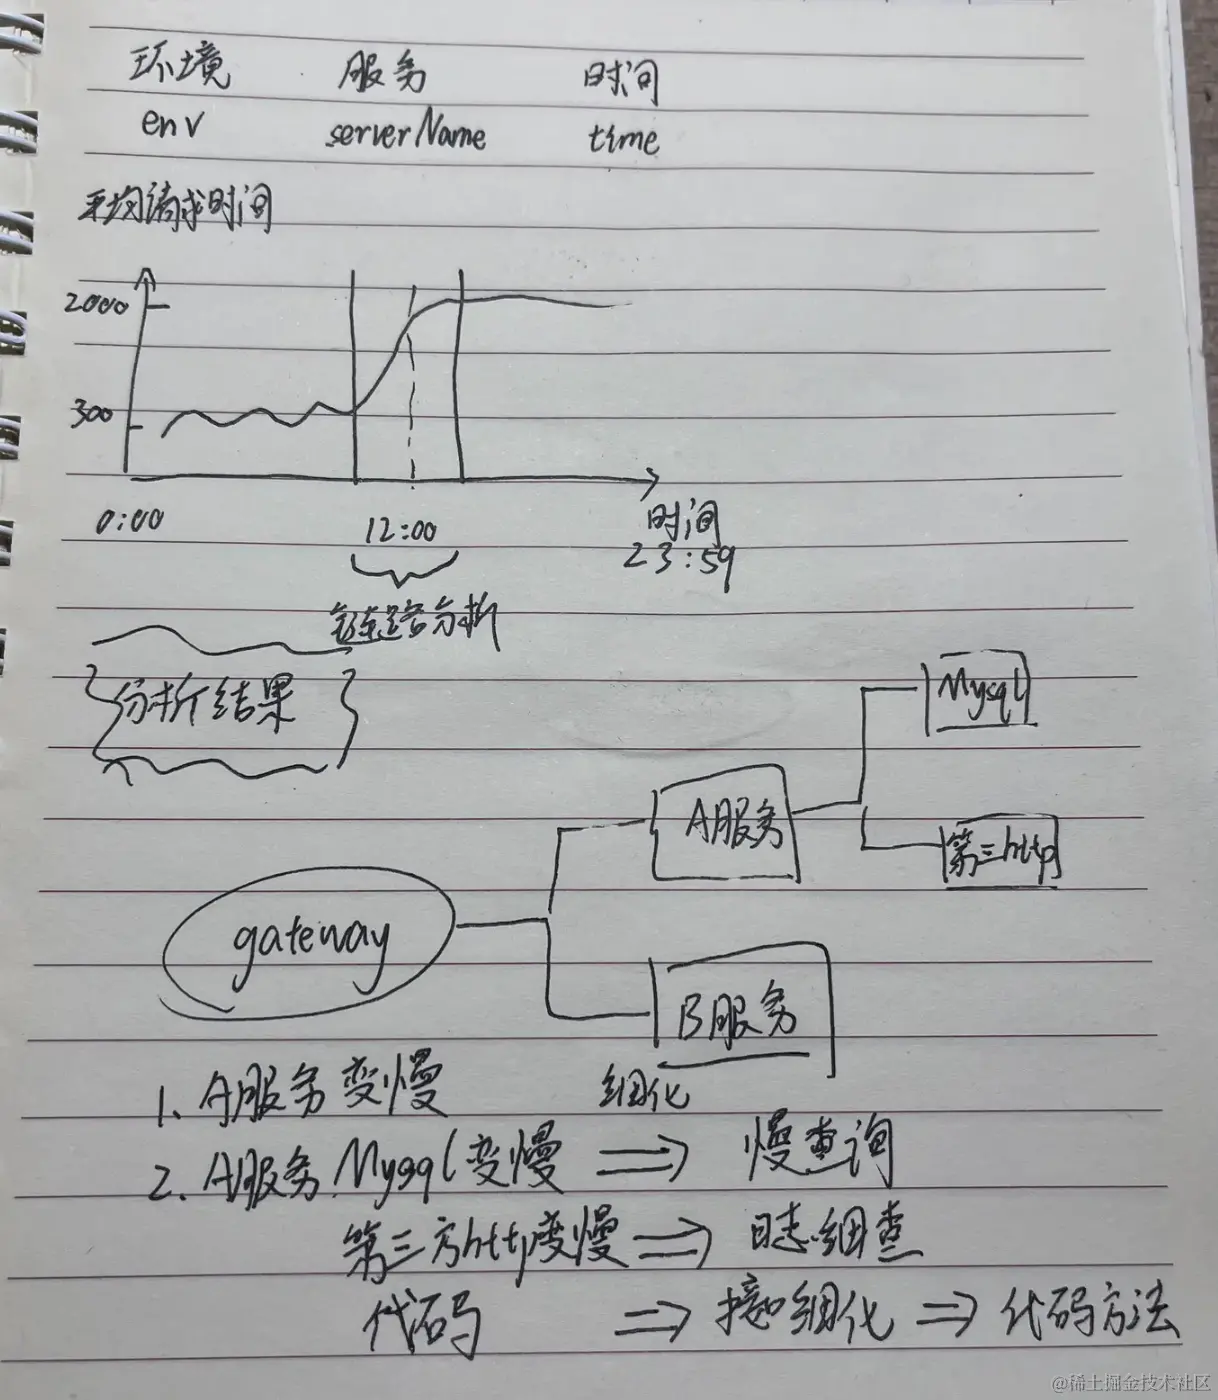 环境 服务 时间
env serverName time
平均请求时间
2000
300
0:00 12:00 时间
23:59
链路分析
分析结果
Mysql
A服务
第三http
gateway
B服务
1. A服务变慢 细化
2. A服务Mysql变慢 => 慢查询
第三方http变慢 => 日志细查
代码 => 接口细化 => 代码方法
@稀土掘金技术社区